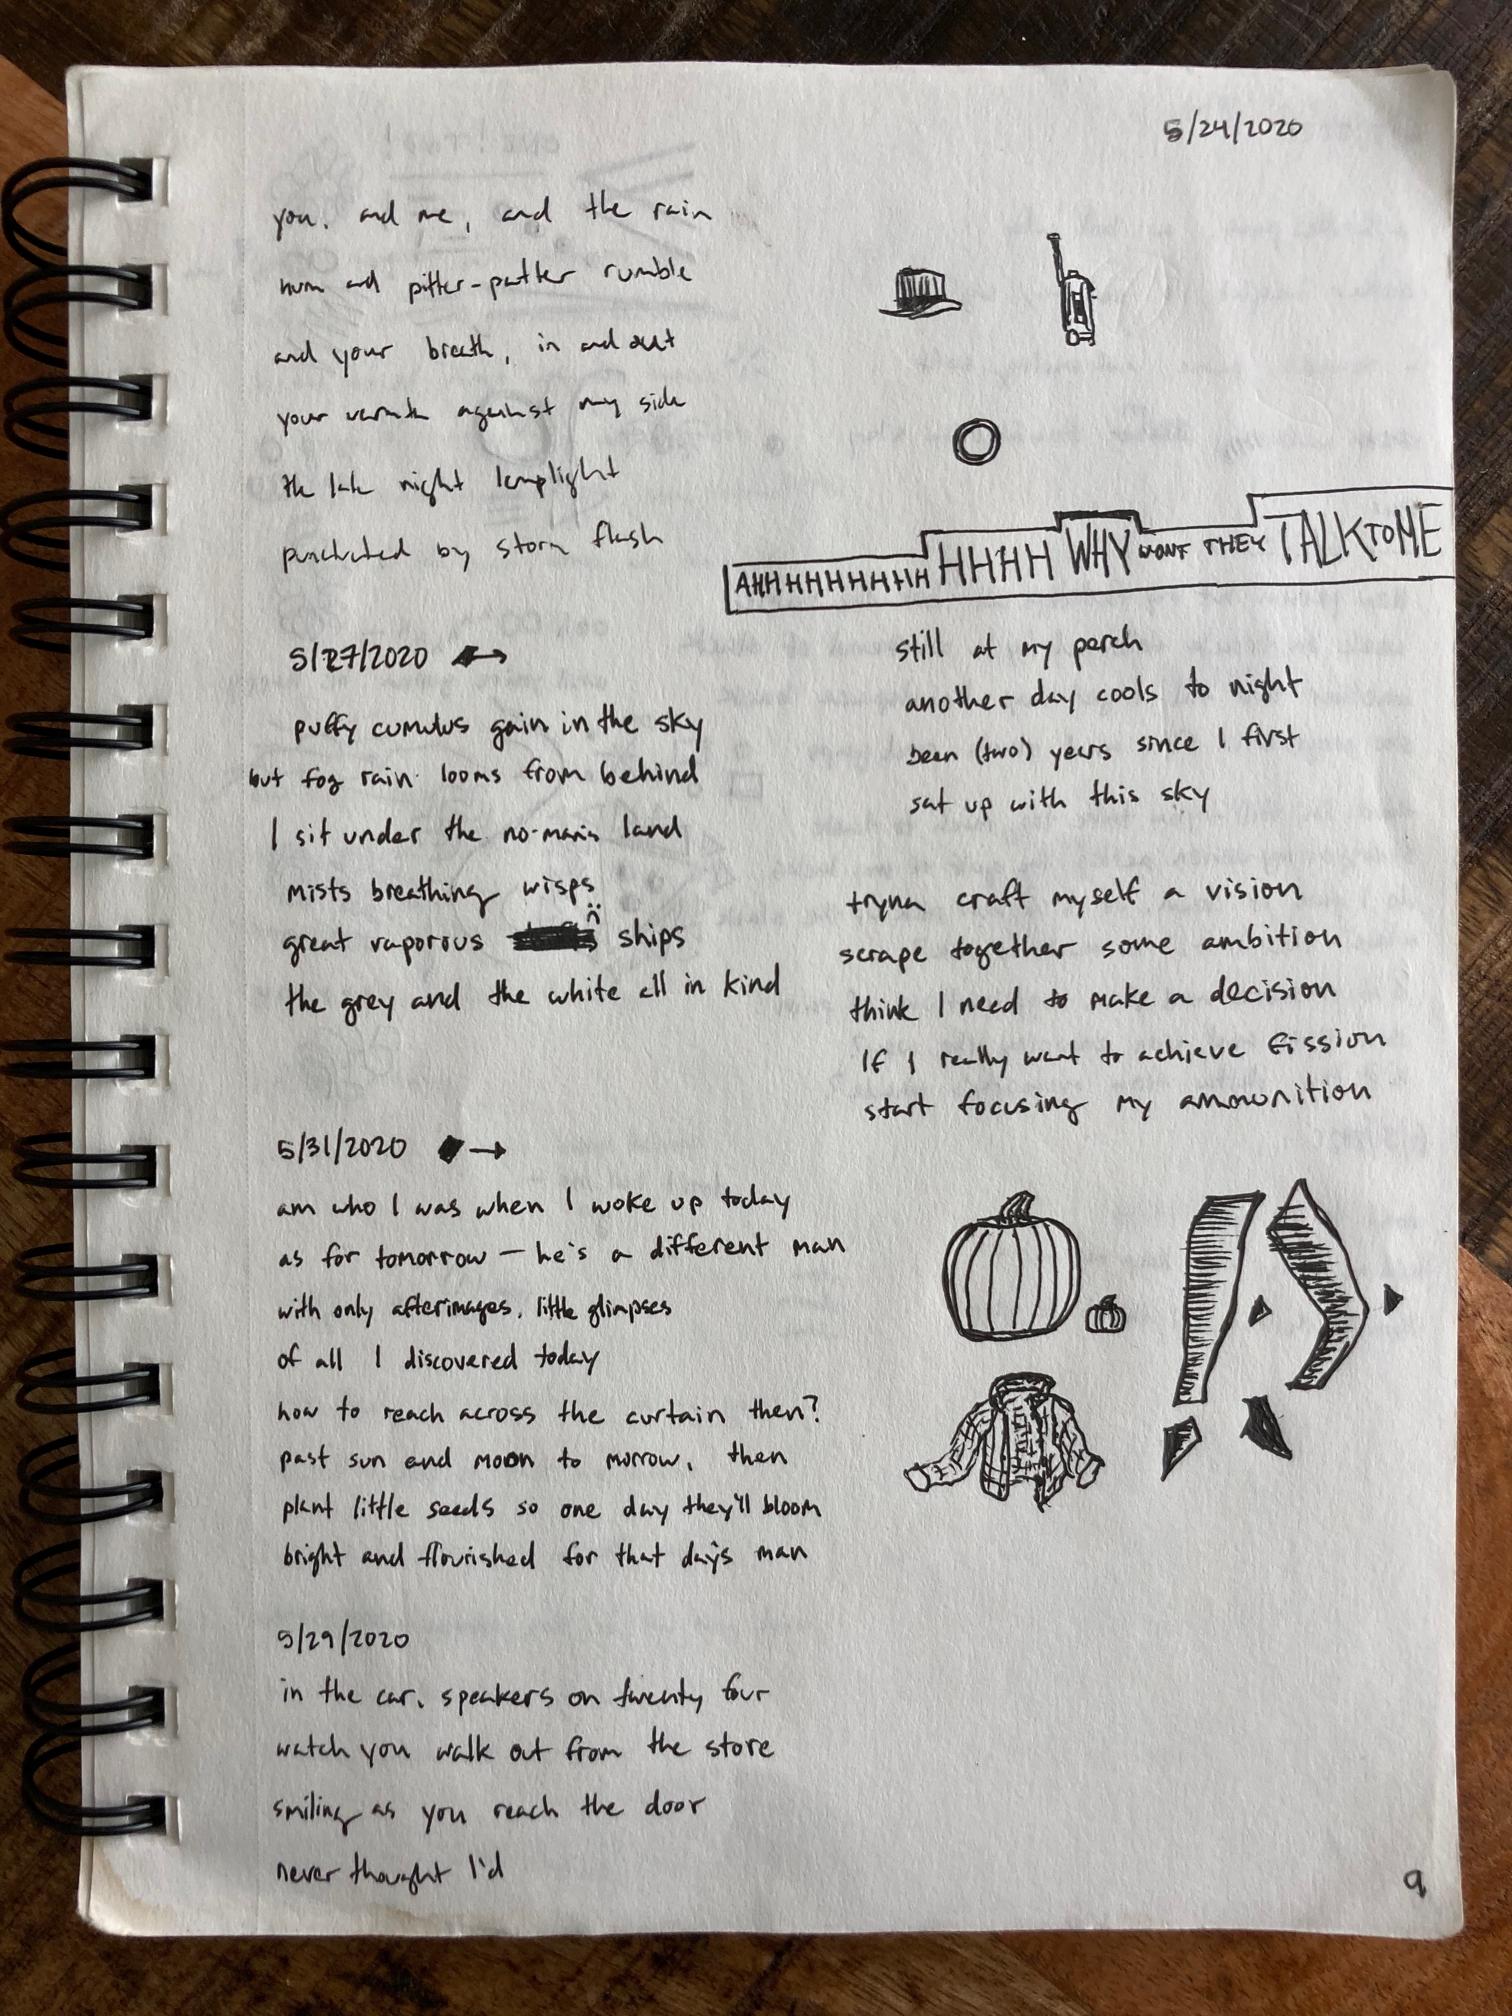 5/24/2020
you. and me, and the rain
hum and pitter-patter rumble
and your breath, in and out
your warmth against my side
the late night lamplight
punctuated by storm flash
AHHHHHHHHHH HHHH WHY WONT THEY TALK TO ME
5/27/2020
puffy cumulus gain in the sky
but fog rain looms from behind
I sit under the no-man's land
mists breathing wisps
great vaporous ships
the grey and the white all in kind
still at my perch
another day cools to night
been (two) years since I first
sat up with this sky
tryna craft myself a vision
scrape together some ambition
think I need to make a decision
If I really want to achieve fission
start focusing my ammunition
5/31/2020
am who I was when I woke up today
as for tomorrow — he's a different man
with only afterimages, little glimpses
of all I discovered today
how to reach across the curtain then?
past sun and moon to morrow, then
plant little seeds so one day they'll bloom
bright and flourished for that day's man
5/29/2020
in the car, speakers on twenty four
watch you walk out from the store
smiling as you reach the door
never thought I'd
9